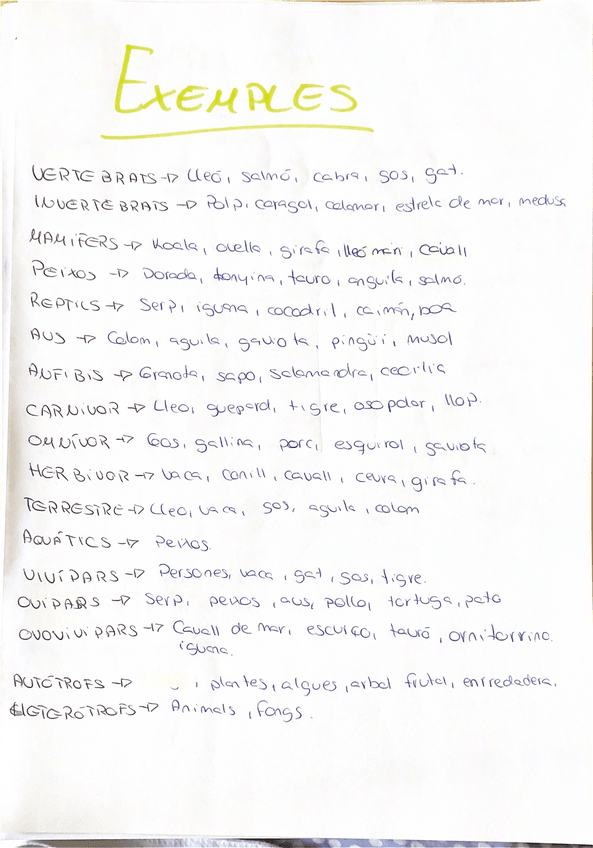 EXEMPLES
VERTEBRATS → Lleó, salmó, cabra, gos, gat.
INVERTEBRATS → Polp, caragol, calamar, estrela de mar, medusa
MAMÍFERS → Koala, ovella, girafa, lleó marí, cavall
PEIXOS → Dorada, tonyina, tauro, anguila, salmó.
REPTILS → Serp, iguana, cocodril, caimán, boa
AUS → Colom, aguila, gaviota, pingüí, musol
ANFIBIS → Granota, sapo, salamandra, cecilia
CARNÍVOR → Lleo, guepard, tigre, oso polar, llop.
OMNÍVOR → Gos, gallina, porc, esquirol, gaviota
HERBIVOR → Vaca, conill, cavall, cevra, girafa.
TERRESTRE → Lleo, vaca, gos, aguila, colom
AQUÁTICS → Peixos.
VIVÍPARS → Persones, vaca, gat, gos, tigre.
OVIPARS → Serp, peixos, aus, pollo, tortuga, pato
OVOVIVIPARS → Cavall de mar, escurço, tauró, ornitorrino.
iguana.
AUTÓTROFS → , plantes, algues, arbol frutal, enrredadera.
HETERÓTROFS → Animals, fongs.